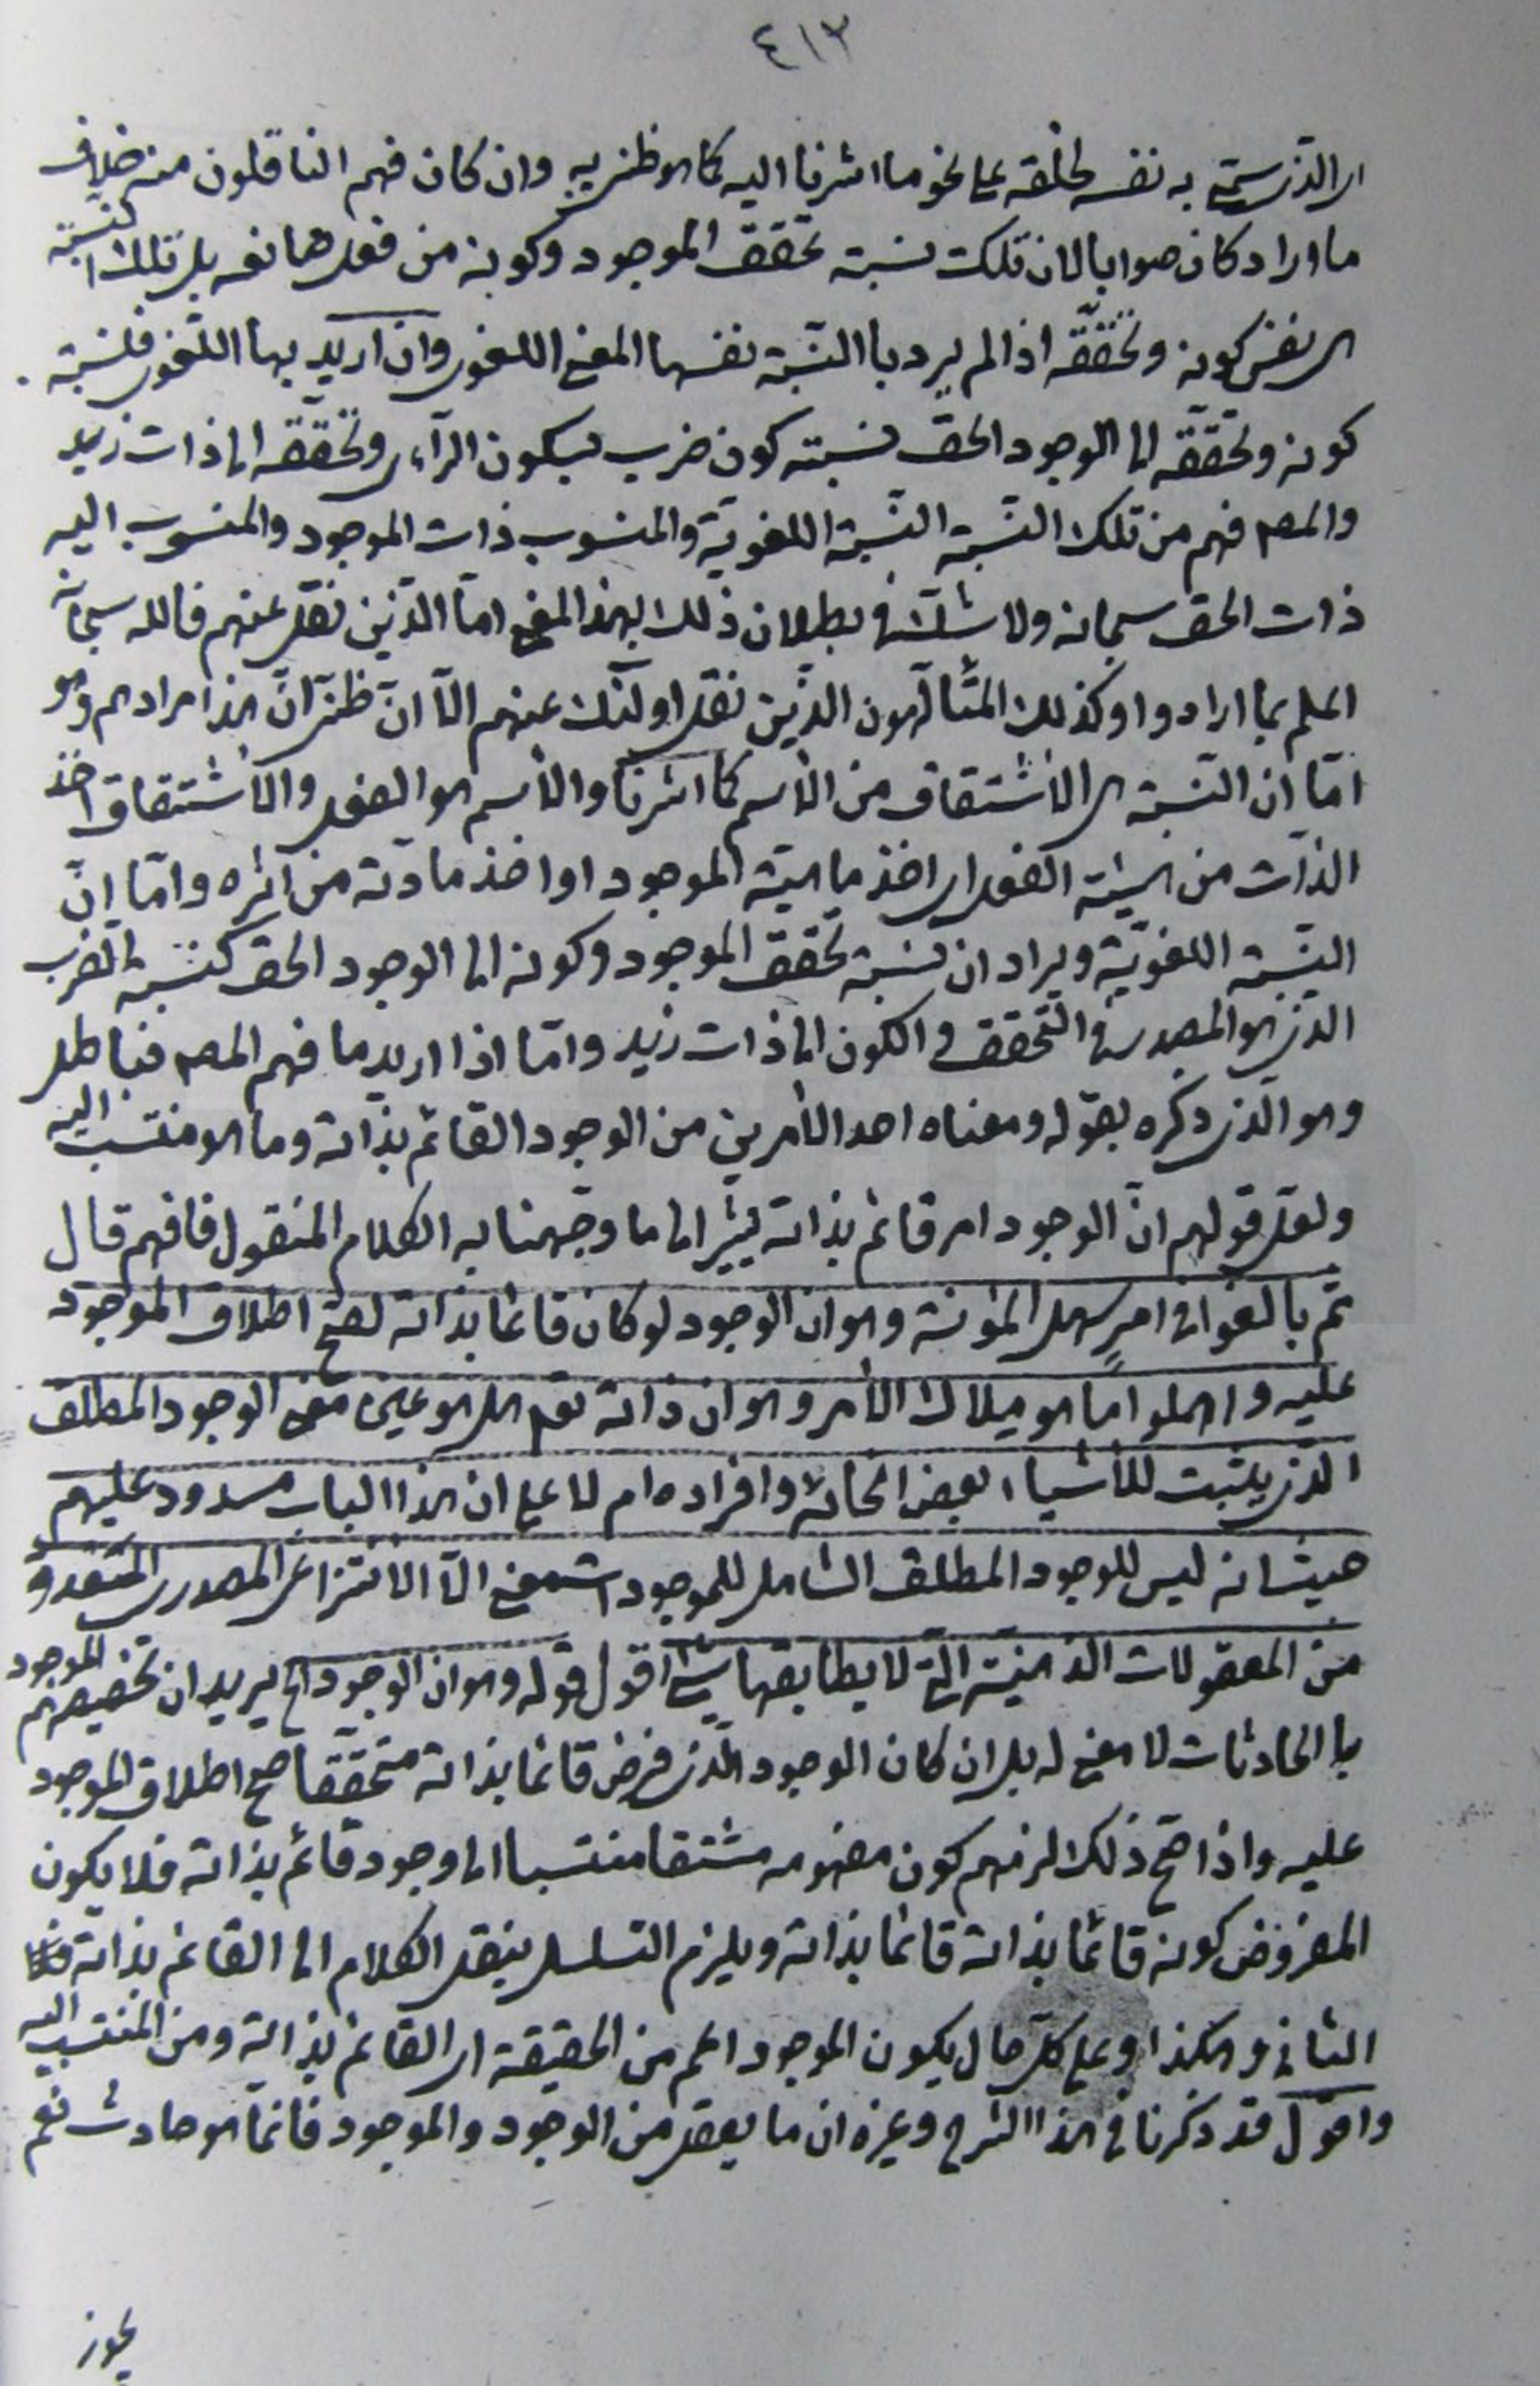 ٤١٣
اى الذى سمى به نفسه لخلقه على نحو ما اشرنا اليه كما هو ظنى به وان كان فهم الناقلون منه خلاف
ما اراد كان صوابا لان تلك نسبة تحقق الموجود وكونه من فعل صانعه بل تلك النسبة
هى نفس كونه وتحققه اذا لم يرد بالنسبة نفسها المعنى اللغوى وان اريد بها اللغوى فنسبة
كونه وتحققه الى الوجود الحق نسبته كون ضرب بسكون الراء وتحققه الى ذات زيد
والمصـ فهم من تلك النسبة النسبة اللغوية والمنسوب ذات الموجود والمنسوب اليه
ذات الحق سبحانه ولا شك فى بطلان ذلك بهذا المعنى اما الذين نقل عنهم فالله سبحانه
اعلم بما ارادوا وكذلك المتألهون الذين نقل اولئك عنهم الا ان ظنى ان هذا مرادهم وهو
اما ان النسبة هى الاشتقاق من الاسم كما اشرنا والاسم هو الفعل والاشتقاق اخذ
الذات من هيئة الفعل اى اخذ ماهية الموجود او اخذ مادته من اثره واما ان
النسبة اللغوية ويراد ان نسبة تحقق الموجود وكونه الى الوجود الحق كنسبة الضرب
الذى هو المصدر فى التحقق والكون الى ذات زيد واما اذا اريد ما فهم المصـ فباطل
وهو الذى ذكره بقوله ومعناه احد الامرين من الوجود القائم بذاته وما هو منتسب اليه
ولعل قولهم ان الوجود امر قائم بذاته يشير الى ما وجهنا به الكلام المنقول فافهم قال
ثم بالغوا فى امرٍ سهل المؤنة وهو ان الوجود لو كان قائما بذاته لصح اطلاق الموجود
عليه واهملوا ما هو ملاك الامر وهو ان ذاته تعـ هل هو عين معنى الوجود المطلق
الذى يثبت للاشياء بعض انحائه وافراده ام لا على ان هذا الباب مسدود عليهم
حيث انه ليس للوجود المطلق الشامل للموجودات معنى الا الانتزاعى المصدرى المعدود
من المعقولات الذهنية التى لا يطابقها شئ اقول قوله وهو ان الوجود الخ يريد ان تخصيصهم الموجود
بالحادثات لا معنى له بل ان كان الوجود الذى فرض قائما بذاته متحققا صح اطلاق الموجود
عليه واذا صح ذلك لزمهم كون مفهومه مشتقا منتسبا الى وجود قائم بذاته فلا يكون
المفروض كونه قائما بذاته قائما بذاته ويلزم التسلسل بنقل الكلام الى القائم بذاته
الثانى وهكذا وعلى كل حال يكون الموجود اعم من الحقيقة اى القائم بذاته ومن المنتسب اليه
واقول قد ذكرنا فى هذا الشرح وغيره ان ما يعقل من الوجود والموجود فانما هو حادث نعم
يجوز